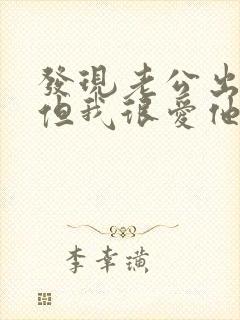 發現老公出
但我很愛他
李幸璜